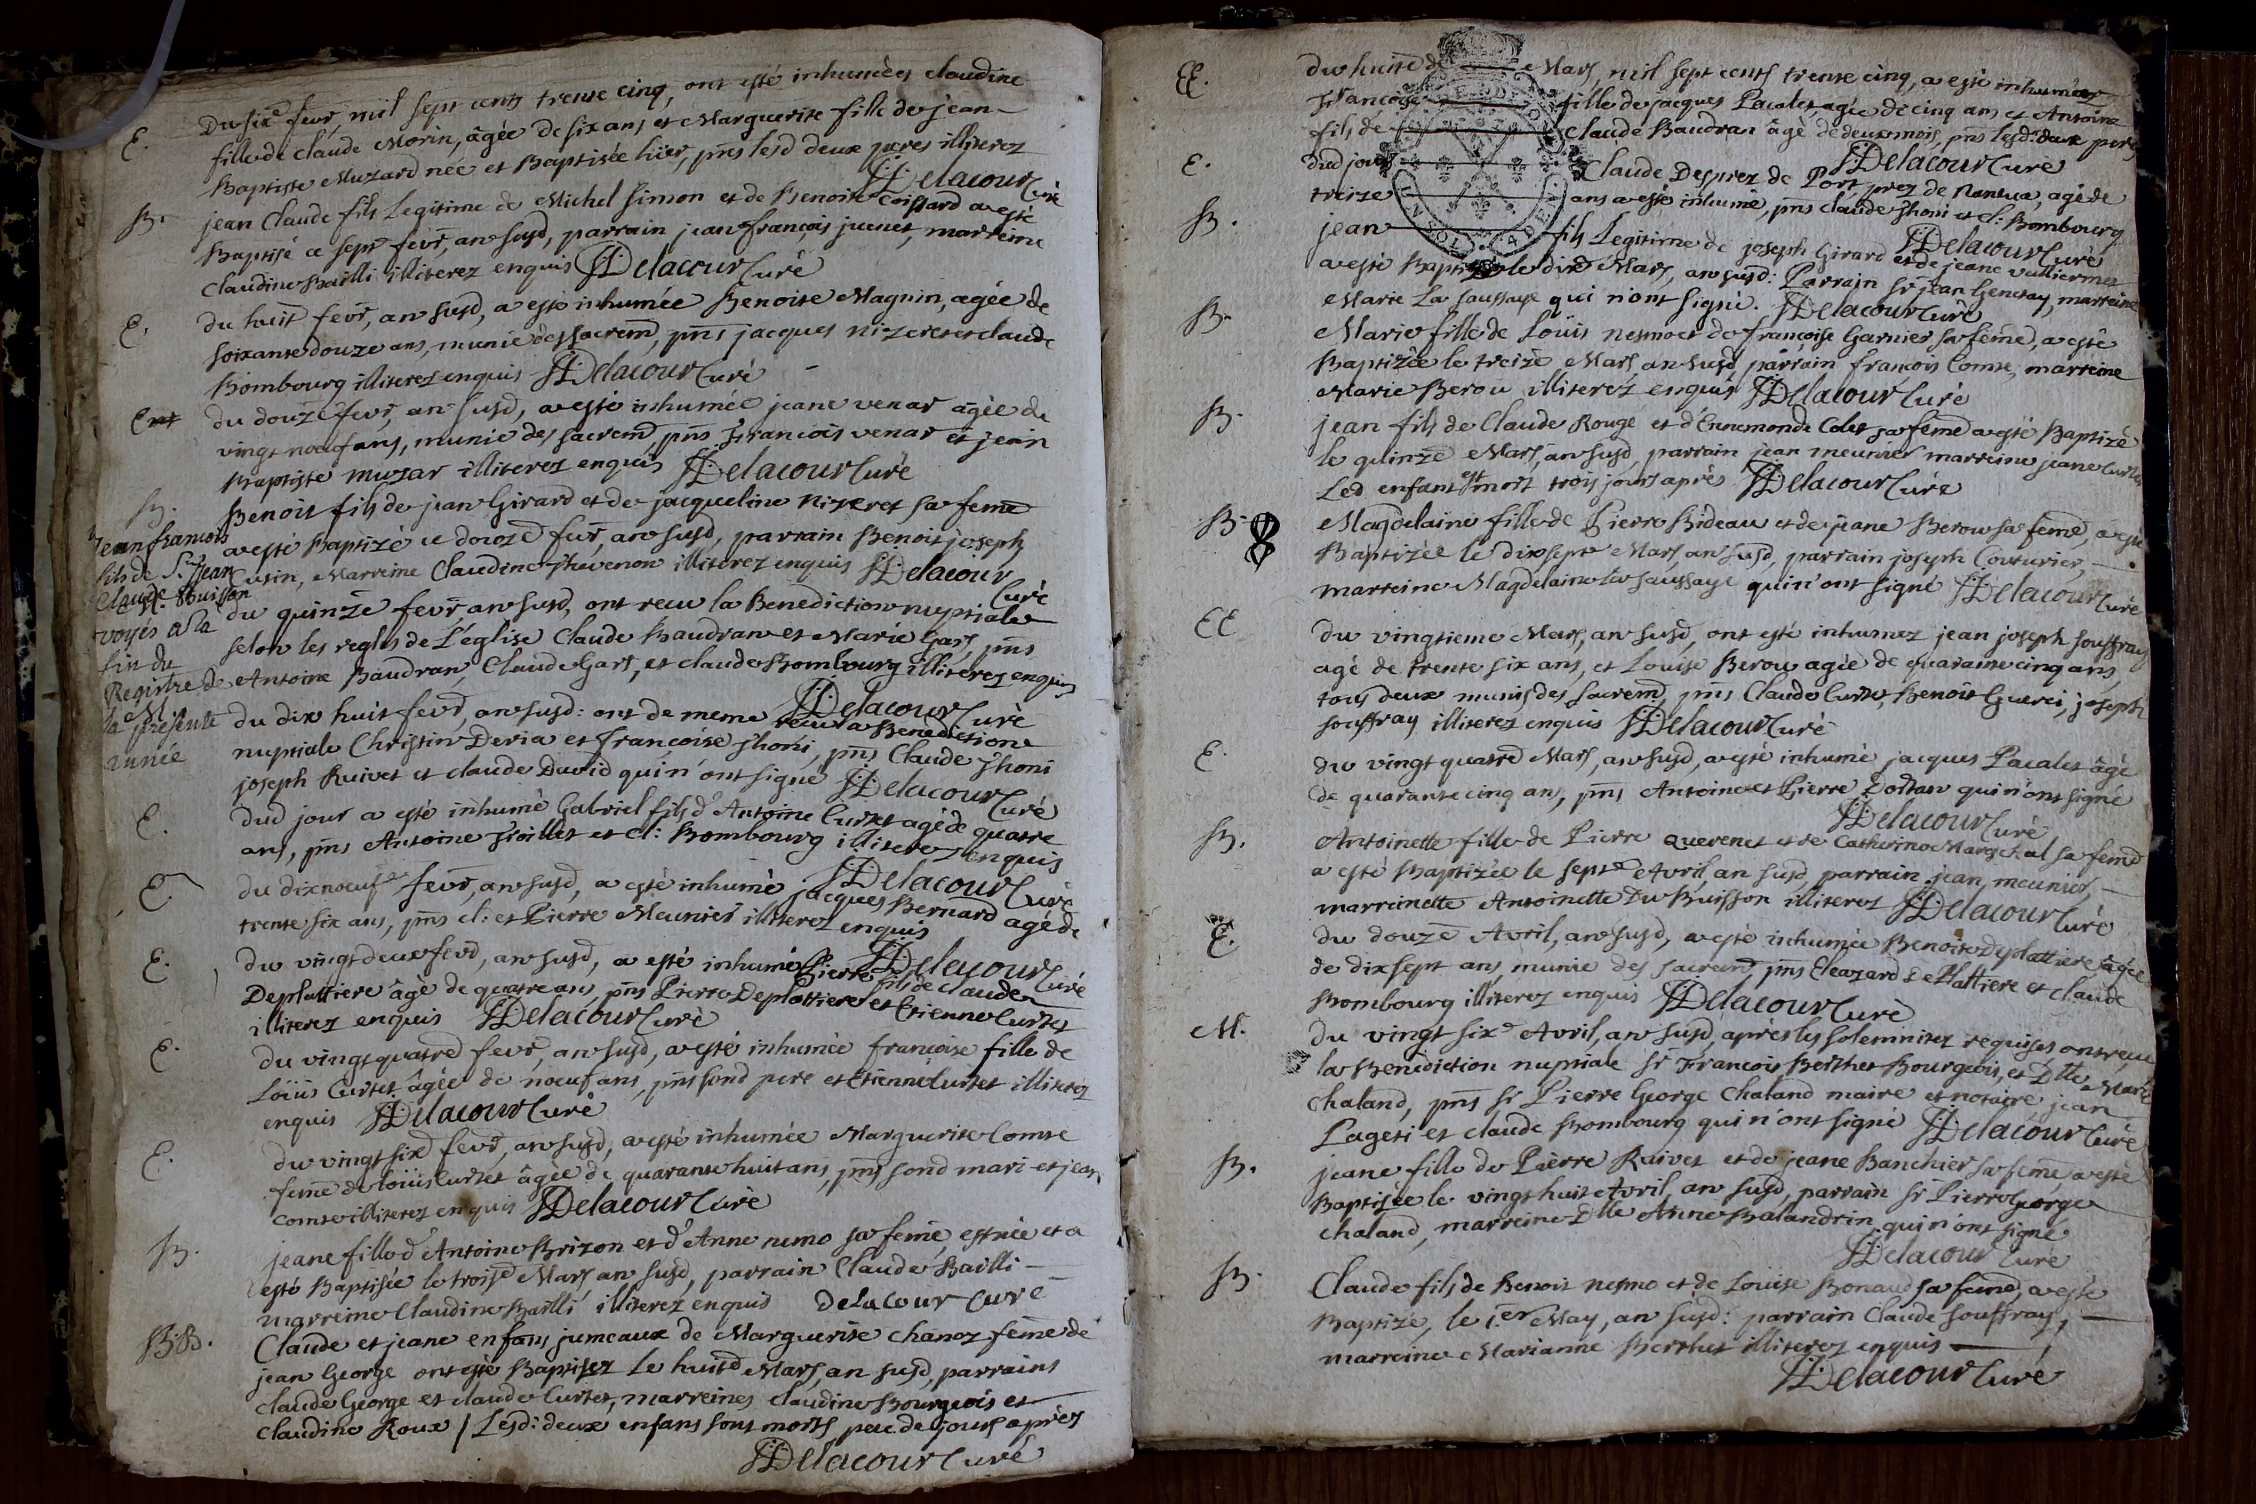 E.
Du sixe. fevr. mil sept cents trente cinq, ont esté inhumées claudine
fille de claude Morin, âgée de six ans, et Marguerite fille de jean
Baptiste Muzard née et Baptisée hier, pns lesd deux peres illiterez
Delacour Curé
B.
jean Claude fils Legitime de Michel Simon et de Benoite Coissard a esté
Baptisé ce sept fevr, an susd, parrain jean françois jucnet, marreine
Claudine Bailli illiterez enquis Delacour Curé
E.
du huit fevr, an susd, a esté inhumée Benoite Magnin, agée de
soixante douze ans, munie des sacremd, pns jacques nizeret et claude
Bombourg illiterez enquis Delacour Curé
Ent
du douze fevr, an susd, a esté inhumée jeane venar âgée de
vingt noeuf ans, munie des sacremd, pns Francois venar et jean
Baptiste muzar illiterez enquis Delacour Curé
B.
Benoit fils de jean Girard et de jacqueline Nizeret sa feme
a esté Baptizé ce douze fevr, an susd, parrain Benoit joseph
Cusin, Marreine Claudine Thevenon illiterez enquis Delacour
Curé
jean francois
fils de Sr. jean
Claude Buisson
voyés a la
fin du
Registre de
la presente
année
du quinze fevr, an susd, ont recu la Benediction nuptiale
selon les regles de L'église Claude Baudran et Marie Gars, pns
Antoine Baudran, Claude Gars, et claude Bombourg illiterez enquis
Delacour Curé
M.
du dix huit fevr, an susd: ont de meme recu la Benediction
nuptiale Christin Deria et françoise Jhoni, pns Claude Jhoni
joseph Ruivet et claude David qui n'ont signé Delacour Curé
E.
dud jour a esté inhumé Gabriel fils d'Antoine Curtet agé de quatre
ans, pns Antoine Froillet et cl: Bombourg illiterez enquis
Delacour Curé
E.
du dix noeufe fevr, an susd, a esté inhumé jacques Bernard agé de
trente six ans, pns cl: et Pierre Meunier illiterez enquis
Delacour Curé
E.
du vingt deux fevr, an susd, a esté inhumé Pierre fils de claude
Deplattiere âgé de quatre ans, pns Pierre Deplattiere et Etienne Curtet
illiterez enquis Delacour Curé
E.
du vingt quatre fevr, an susd, a esté inhumée françoise fille de
Loüis Curtet âgée de noeuf ans, pns sond pere et Etienne Curtet illiterez
enquis Delacour Curé
E.
du vingt six fevr, an susd, a esté inhumée Marguerite Comte
feme de loüis Curtet âgée de quarante huit ans, pns sond mari et jean
comte illiterez enquis Delacour Curé
B.
jeane fille d'Antoine Brizon et d'Anne nemo sa feme, est née et a
esté Baptisée le troise Mars, an susd, parrain Claude Bailli
marreine Claudine Bailli illiterez enquis Delacour Curé
B.B.
Claude et jeane enfans jumeaux de Marguerite chanoz feme de
jean George ont esté Baptisez le huite Mars, an susd, parrains
claude George et claude Curtet, marreines claudine Bourgeois et
Claudine Roux / Lesd: deux enfans sont morts peu de jours après
Delacour Curé
EE.
du huite de Mars, mil sept cents trente cinq, a esté inhumées
Françoise fille de jacques Pacalet, agée de cinq ans et Antoine
fils de Claude Baudran âgé de deux mois, pns lesd: deux peres
Delacour Curé
E.
dud jour Claude Desprez de Port prez de Nantua, agé de
treize ans a esté inhumé, pns claude Jhoni et cl: Bombourg
Delacour Curé
B.
jean fils Legitime de joseph Girard et de jeane vuillermet
a esté Baptizé le dixe Mars, an susd: Parrain Sr jean Genetay, marreine
Marie La Saussaye qui n'ont signé. Delacour Curé
B.
Marie fille de Loüis nesmo et de françoise Garnier sa feme, a esté
Baptizée le treize Mars an susd, parrain françois Comte, marreine
Marie Berou illiterez enquis Delacour Curé
B.
jean fils de Claude Rouge et d'Ennemonde Colet sa feme a esté Baptizé
le quinze Mars, an susd, parrain jean meunier marreine jeane Curtet
Led enfant est mort trois jours après Delacour Curé
B.
Magdelaine fille de Pierre Bideau et de jeane Berou sa feme, a esté
Baptizée le dix sept Mars, an susd, parrain joseph Couturier,
marreine Magdelaine La Saussaye qui n'ont signé Delacour Curé
EE
du vingtieme Mars, an susd, ont esté inhumez jean joseph souffray
agé de trente six ans, et Louise Berou agée de quarante cinq ans,
tous deux munis des sacremd, pns Claude Curtet, Benoit Guerci, joseph
souffray illiterez enquis Delacour Curé
E.
du vingt quatre Mars, an susd, a esté inhumé jacques Pacalet âgé
de quarante cinq ans, pns Antoine et Pierre Dortan qui n'ont signé
Delacour Curé
B.
Antoinette fille de Pierre Querenet et de Catherine Mareschal sa feme
a esté Baptizée le sept Avril an susd, parrain jean meunier,
marreinette Antoinette Du Buisson illiterez Delacour Curé
E.
du douze Avril, an susd, a esté inhumée Benoite Deplattiere âgée
de dix sept ans, munie des sacremd, pns Eleazard DePlattiere et claude
Bombourg illiterez enquis Delacour Curé
M.
du vingt sixe Avril, an susd, après les solemnitez requises ont reçu
la Benediction nuptiale Sr Francois Berthet Bourgeois, et Dlle Marie
Chaland, pns Sr Pierre George Chaland maire et notaire, jean
Pageti et claude Bombourg qui n'ont signé Delacour Curé
B.
jeane fille de Pierre Ruivet et de jeane Banchier sa feme a esté
Baptisée le vingt huit Avril, an susd, parrain Sr Pierre George
chaland, marreine Dlle Anne Balandrin, qui n'ont signé
Delacour Curé
B.
Claude fils de Benoit nesmo et de Loüise Bonaud sa feme, a esté
Baptizé, le 1.er May, an susd: parrain Claude souffray,
marreine Marianne Berthet illiterez enquis
Delacour Curé